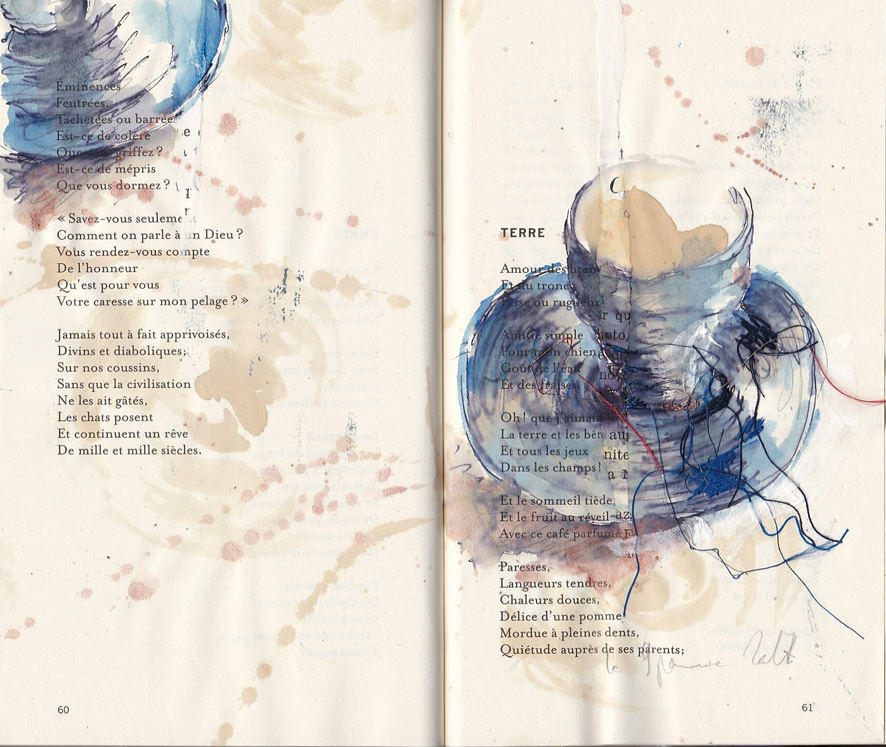 Éminences
Feutrées,
Tachetées ou barrées
Est-ce de colère
Que griffez ?
Est-ce de mépris
Que vous dormez ?
« Savez-vous seuleme
Comment on parle à un Dieu ?
Vous rendez-vous compte
De l'honneur
Qu'est pour vous
Votre caresse sur mon pelage ? »
Jamais tout à fait apprivoisés,
Divins et diaboliques;
Sur nos coussins,
Sans que la civilisation
Ne les ait gâtés,
Les chats posent
Et continuent un rêve
De mille et mille siècles.
60
TERRE
Amour des
Et du tronc
ou rugueux
r qu
simple oto,
Pour mon chien
Goût de l'eau no
Et des fraises
Oh ! que j'aimais
La terre et les bêt au
Et tous les jeux nite
Dans les champs ! a N
Et le sommeil tiède,
Et le fruit au réveil az
Avec ce café parfumé F
Paresses,
Langueurs tendres,
Chaleurs douces,
Délice d'une pomme
Mordue à pleines dents,
Quiétude auprès de ses parents;
61